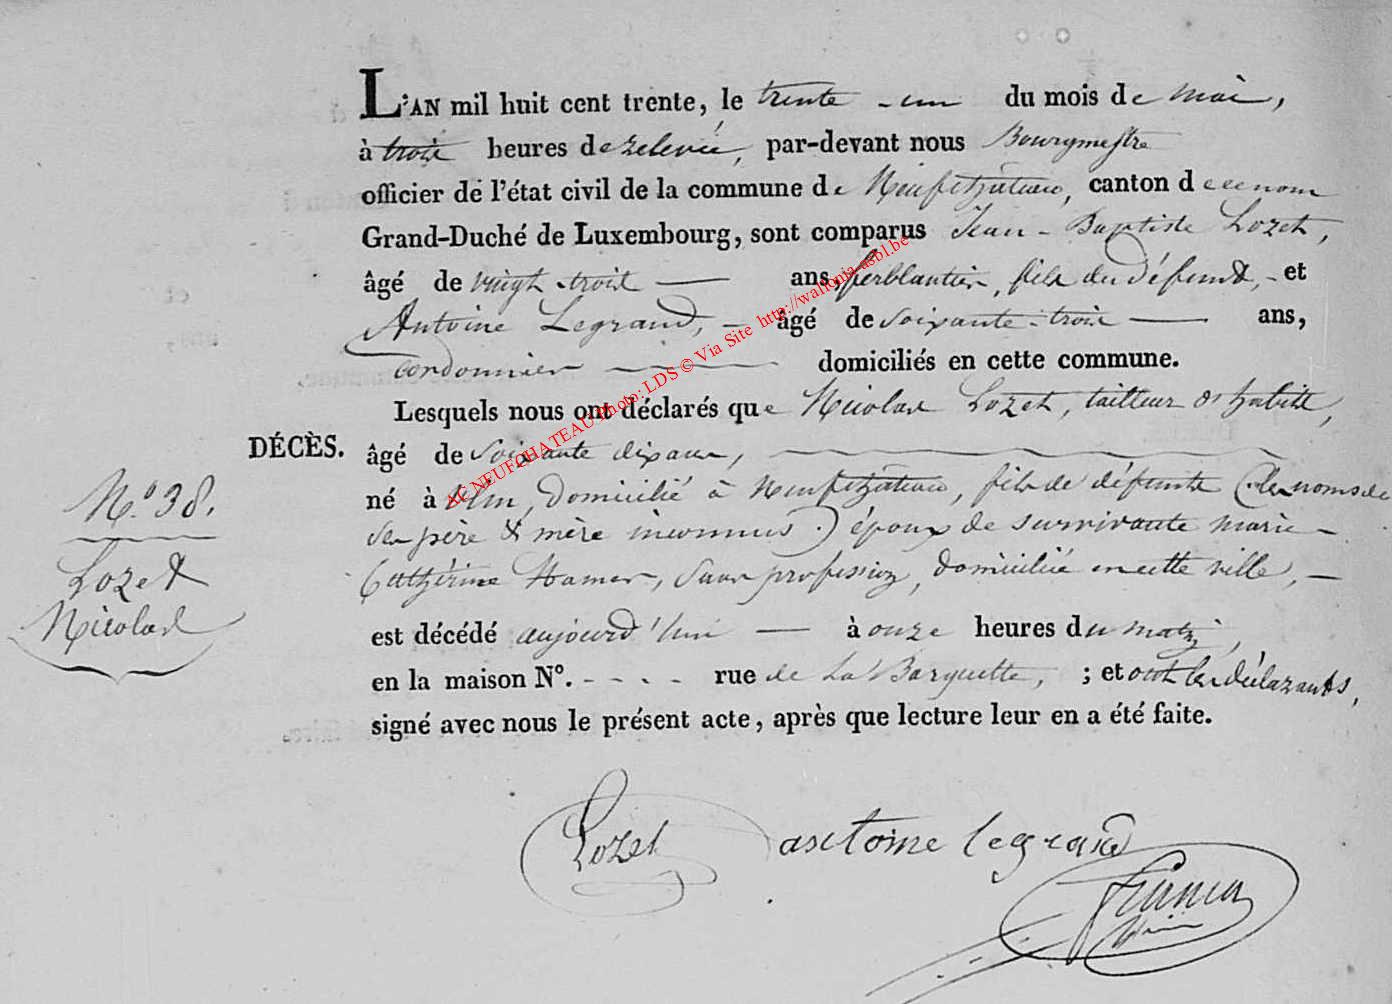 L'AN mil huit cent trente, le trente-un du mois de mai,
à trois heures de relevée, par-devant nous Bourgmestre
officier de l'état civil de la commune de Neufchateau, canton de ce nom
Grand-Duché de Luxembourg, sont comparus Jean-Baptiste Lozet,
âgé de vingt-trois ans, ferblantier, fils du défunt, et
Antoine Legrand, âgé de soixante-trois ans,
cordonnier domiciliés en cette commune.
Lesquels nous ont déclarés que Nicolas Lozet, tailleur d'habits,
DÉCÈS. âgé de soixante dix ans,
né à domicilié à Neufchateau, fils de défunts (les noms de
N.º 38.
ses père & mère inconnus.) époux de survivante marie
Lozet
Catherine Hamer, sans profession, domiciliée en cette ville,
Nicolas
est décédé aujourd'hui à onze heures du matin,
en la maison Nº. - - - - rue de La Barquette, ; et ont les déclarants,
signé avec nous le présent acte, après que lecture leur en a été faite.
Lozet antoine legrand
AC NEUFCHATEAU Photo: LDS © Via Site http://wallonia-asbl.be